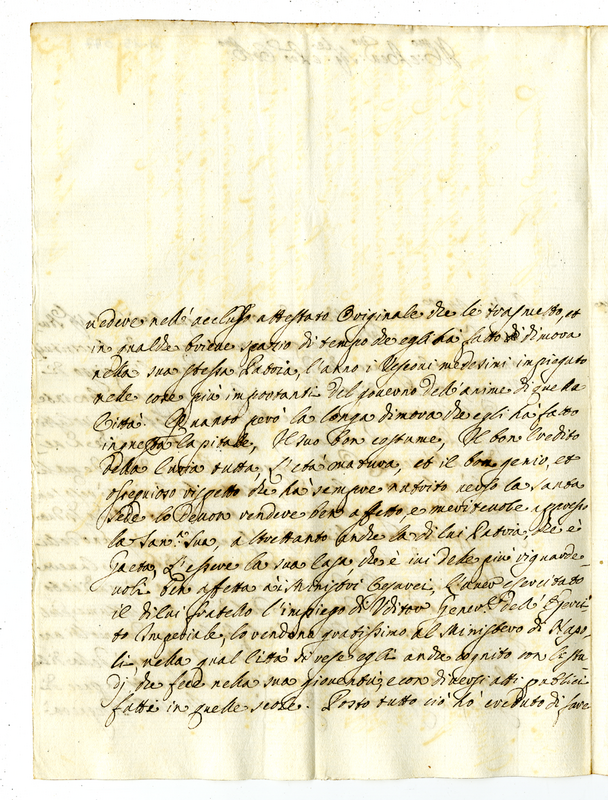 vedere nell'accluso attestato Originale che le trasmetto, et
in qualche brieve spazio di tempo che egli hà fatto di dimora
nella sua stessa Patria, l'anno i Vescovi medesimi impiegato
nelle cose più importanti del governo dell'anime di quella
Città. Quanto però la longa dimora che egli hà fatto
in questa Capitale, Il suo bon costume, Il bon credito
della Curia tutta, L'età matura, et il bon genio, et
ossequioso rispetto che hà sempre nutrito verso la Santa
Sede lo devon rendere ben affetto, e meritevole appresso
la San.tà Sua, altrettanto anche la di lui Patria, che è
Gaeta, L'essere la sua Casa che è ivi delle più riguarde-
voli ben affetta a i Ministri Cesarei, L'aver esercitato
il di lui fratello l'impiego di Uditor General dell'Eserci-
to Imperiale, lo rendono gratissimo al Ministero di Napo-
li, nella qual Città si rese egli anche cognito con le stu-
dj che fece nella sua gioventù, e con diversi atti publici
fatti in quelle scole. Posto tutto ciò hò creduto di fare